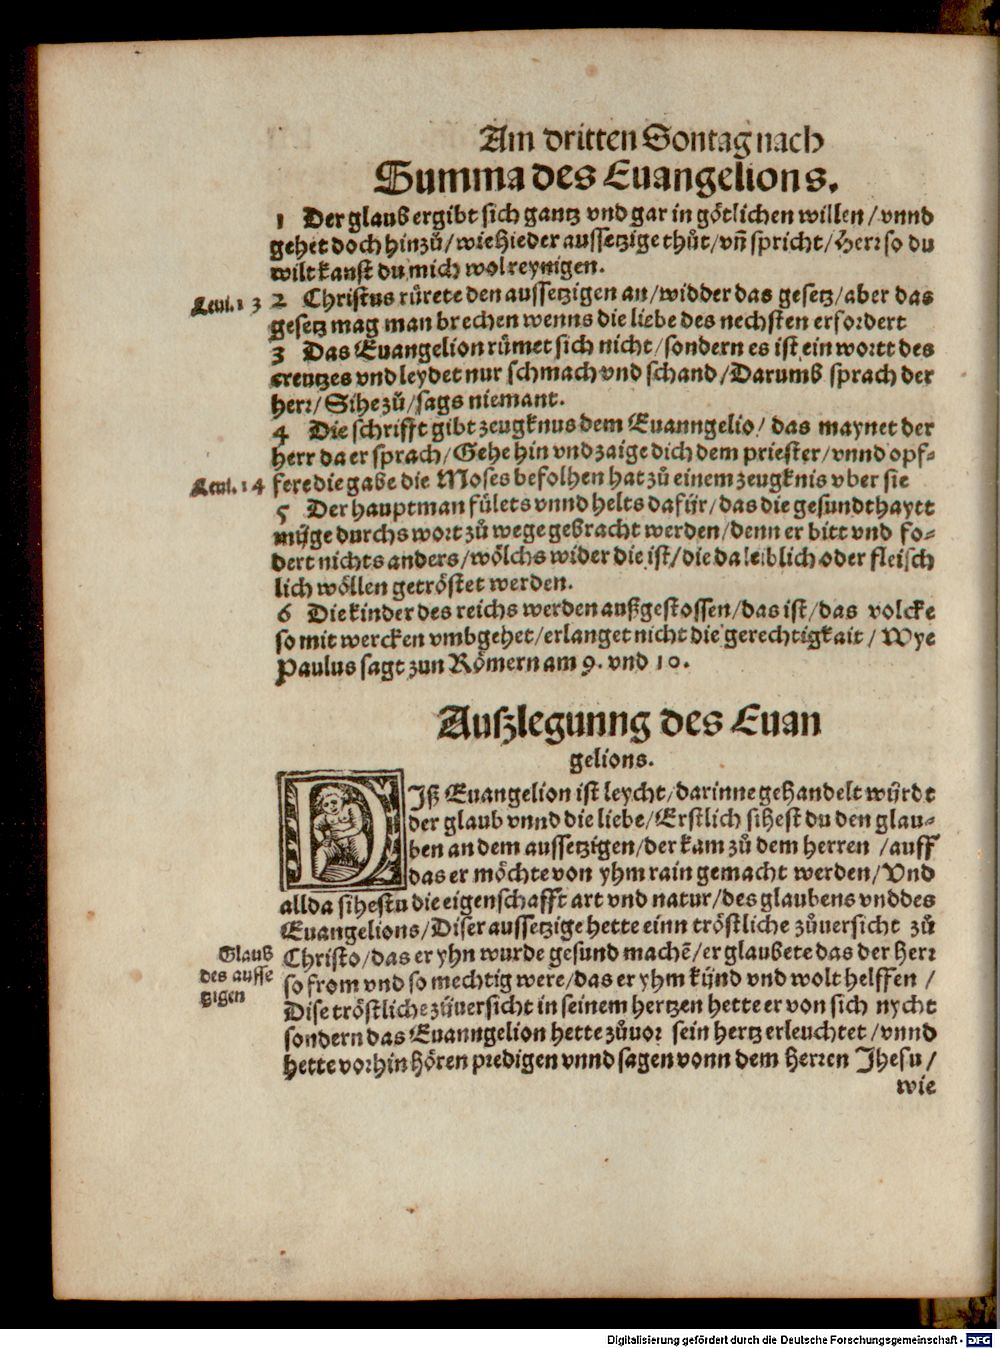 Am dritten Sontag nach
Summa des Euangelions.
1 Der glaub ergibt sich gantz vnd gar in götlichen willen / vnnd
gehet doch hinzů / wie hie der aussetzige thůt / vñ spricht / Herr so du
wilt kanst du mich wol reynigen.
Leui. 13
2 Christus růrete den aussetzigen an / widder das gesetz / aber das
gesetz mag man brechen wenns die liebe des nechsten erfordert
3 Das Euangelion růmet sich nicht / sondern es ist ein wortt des
creutzes vnd leydet nur schmach vnd schand / Darumb sprach der
herr / Sihe zů / sags niemant.
4 Die schrifft gibt zeugknus dem Euanngelio / das maynet der
herr da er sprach / Gehe hin vnd zaige dich dem priester / vnnd opf-
Leui. 14
fere die gabe die Moses befolhen hat zů einem zeugknis vber sie
5 Der hauptman fůlets vnnd helts dafür / das die gesundthaytt
müge durchs wort zů wege gebracht werden / denn er bitt vnd fo-
dert nichts anders / wölchs wider die ist / die da leiblich oder fleisch
lich wöllen getröstet werden.
6 Die kinder des reichs werden außgestossen / das ist / das volcke
so mit wercken vmbgehet / erlanget nicht die gerechtigkait / Wye
Paulus sagt zun Römern am 9. vnd 10.
Außlegunng des Euan
gelions.
DIß Euangelion ist leycht / darinne gehandelt würdt
der glaub vnnd die liebe / Erstlich sihest du den glau-
ben an dem aussetzigen / der kam zů dem herren / auff
das er möchte von yhm rain gemacht werden / Vnd
allda sihestu die eigenschafft art vnd natur / des glaubens vnd des
Euangelions / Diser aussetzige hette einn tröstliche zůuersicht zů
Glaub
des ausse
tzigen
Christo / das er yhn wurde gesund machē / er glaubete das der Herr
so from vnd so mechtig were / das er yhm künd vnd wolt helffen /
Dise tröstliche zůuersicht in seinem hertzen hette er von sich nycht
sondern das Euanngelion hette zůuor sein hertz erleuchtet / vnnd
hette vorhin hören predigen vnnd sagen vonn dem Herren Jhesu /
wie
Digitalisierung gefördert durch die Deutsche Forschungsgemeinschaft - DFG